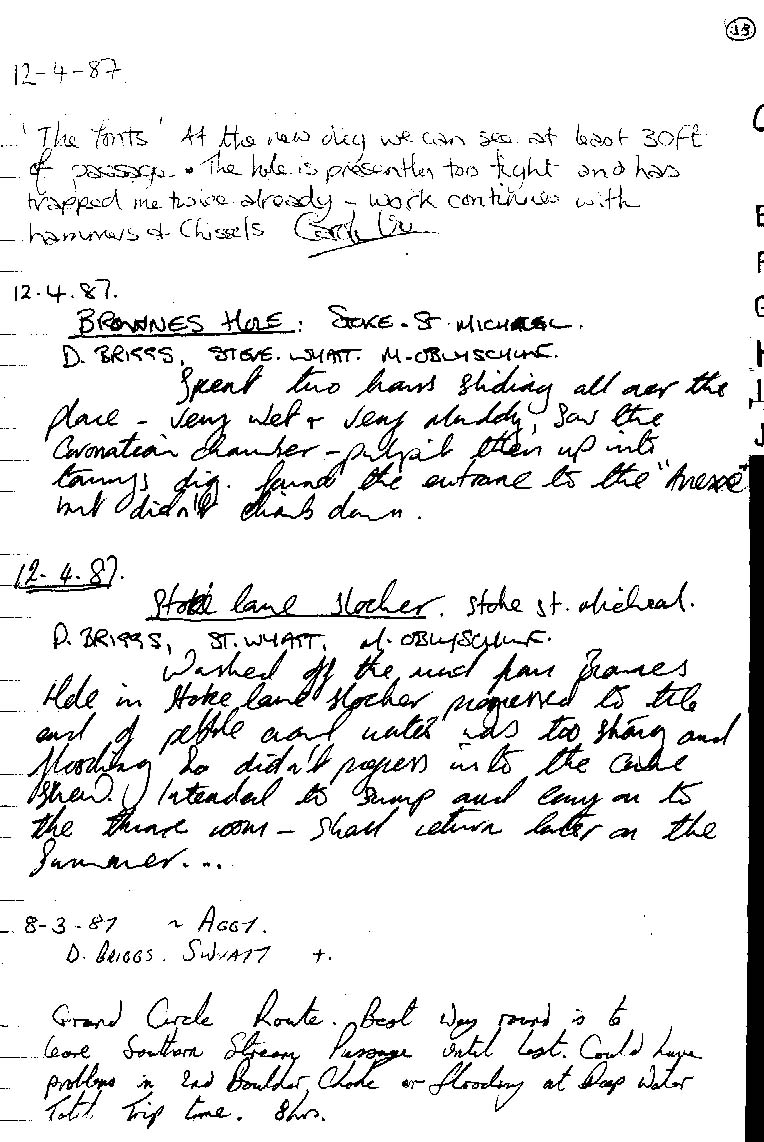 18
12-4-87
'The Fonts' At the new dig we can see at least 30ft
of passage. The hole is presently too tight and has
trapped me twice already - work continues with
hammers & Chissels
12.4.87.
BROWNES HOLE: STOKE. St MICHAEL.
D. BRIGGS, STEVE. WYATT. M. OBLYSCHUK.
Spent two hours sliding all over the
place - very wet & very muddy, saw the
Coronation chamber - pulpit then up into
dig. found the entrane to the "Anexe"
but didn't climb down.
12.4.87.
Stoke lane slocker. Stoke st. Micheal.
D. BRIGGS, ST. WYATT. M. OBLYSCHUK.
Washed off the mud from Brownes
Hole in Stoke lane slocker progressed to the
end of pebble crawl water was too strong and
flooding so didn't progess into the
Intended to sump and carry on to
the throne room - shall return later on the
Summer...
8-3-87 ~ AGGY.
D. BRIGGS. S WYATT +.
Grand Circle Route. Best way round is to
leave Southern Stream Passage until last. Could have
problems in 2nd Boulder Choke or flooding at Deep Water
Total Trip time. 8hrs.